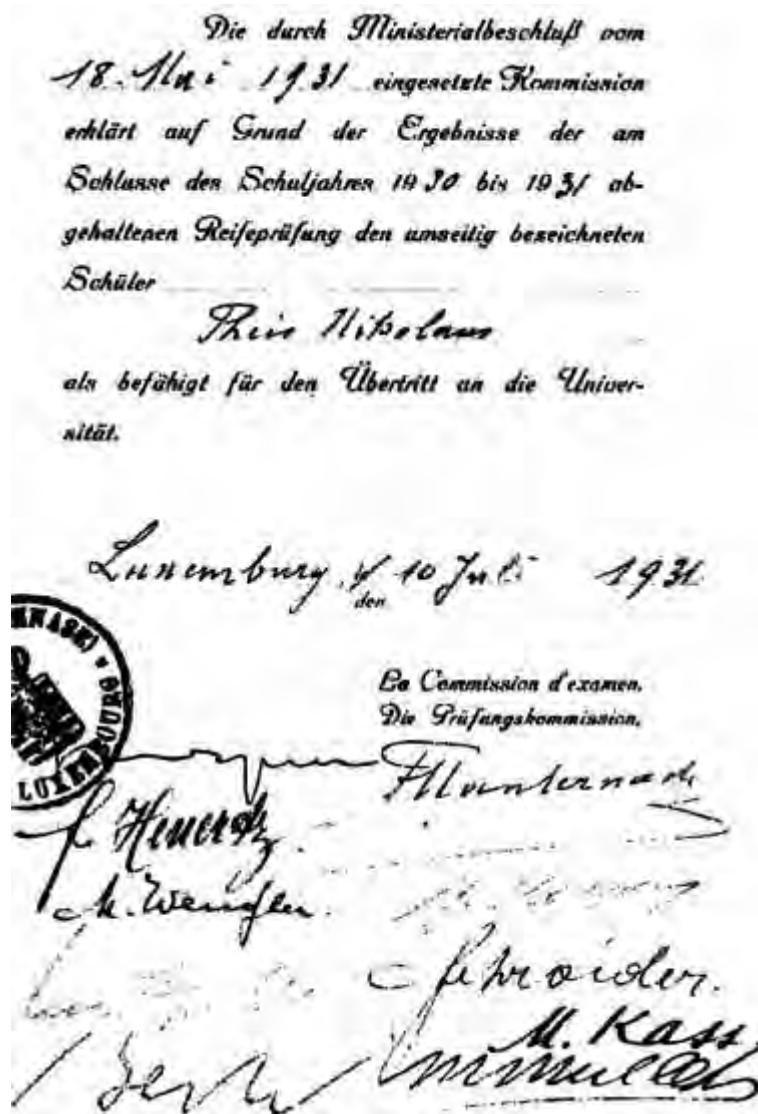 Die durch Ministerialbeschluß vom
18. Mai 1931 eingesetzte Kommission
erklärt auf Grund der Ergebnisse der am
Schlusse des Schuljahres 1930 bis 1931 ab-
gehaltenen Reifeprüfung den umseitig bezeichneten
Schüler
Theis Nikolaus
als befähigt für den Übertritt an die Univer-
sität.
Luxemburg, den 10 Juli 1931
LUXEMBOURG
La Commission d'examen.
Die Prüfungskommission.
Manternach
Heuertz
M. Wengler.
Schroeider.
M. Kass